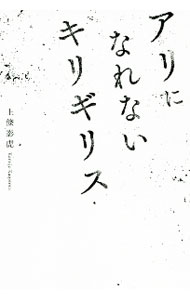 アリに
なれない
キリギリス
上條影虎